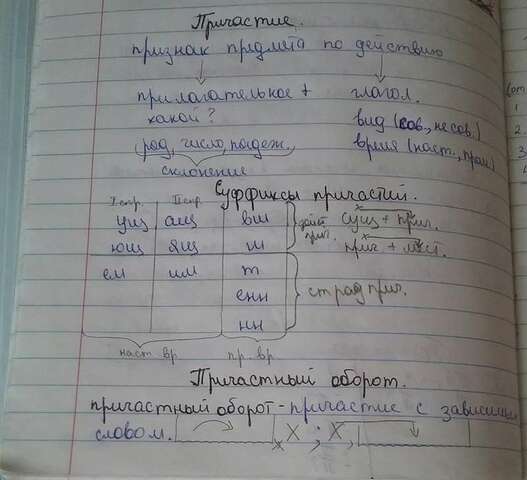 Причастие.
признак предмета по действию
прилагательное + глагол.
какой? вид (сов., несов.)
(род, число, падеж.) время (наст., прош)
склонение
Суффиксы причастий.
I спр. II спр.
ущ ащ вш действ прич. сущ + прич.
ющ ящ ш прич + мест.
ем им т страд прич.
енн
нн
наст вр пр. вр
Причастный оборот.
причастный оборот - причастие с зависимым
словом. X ; X,